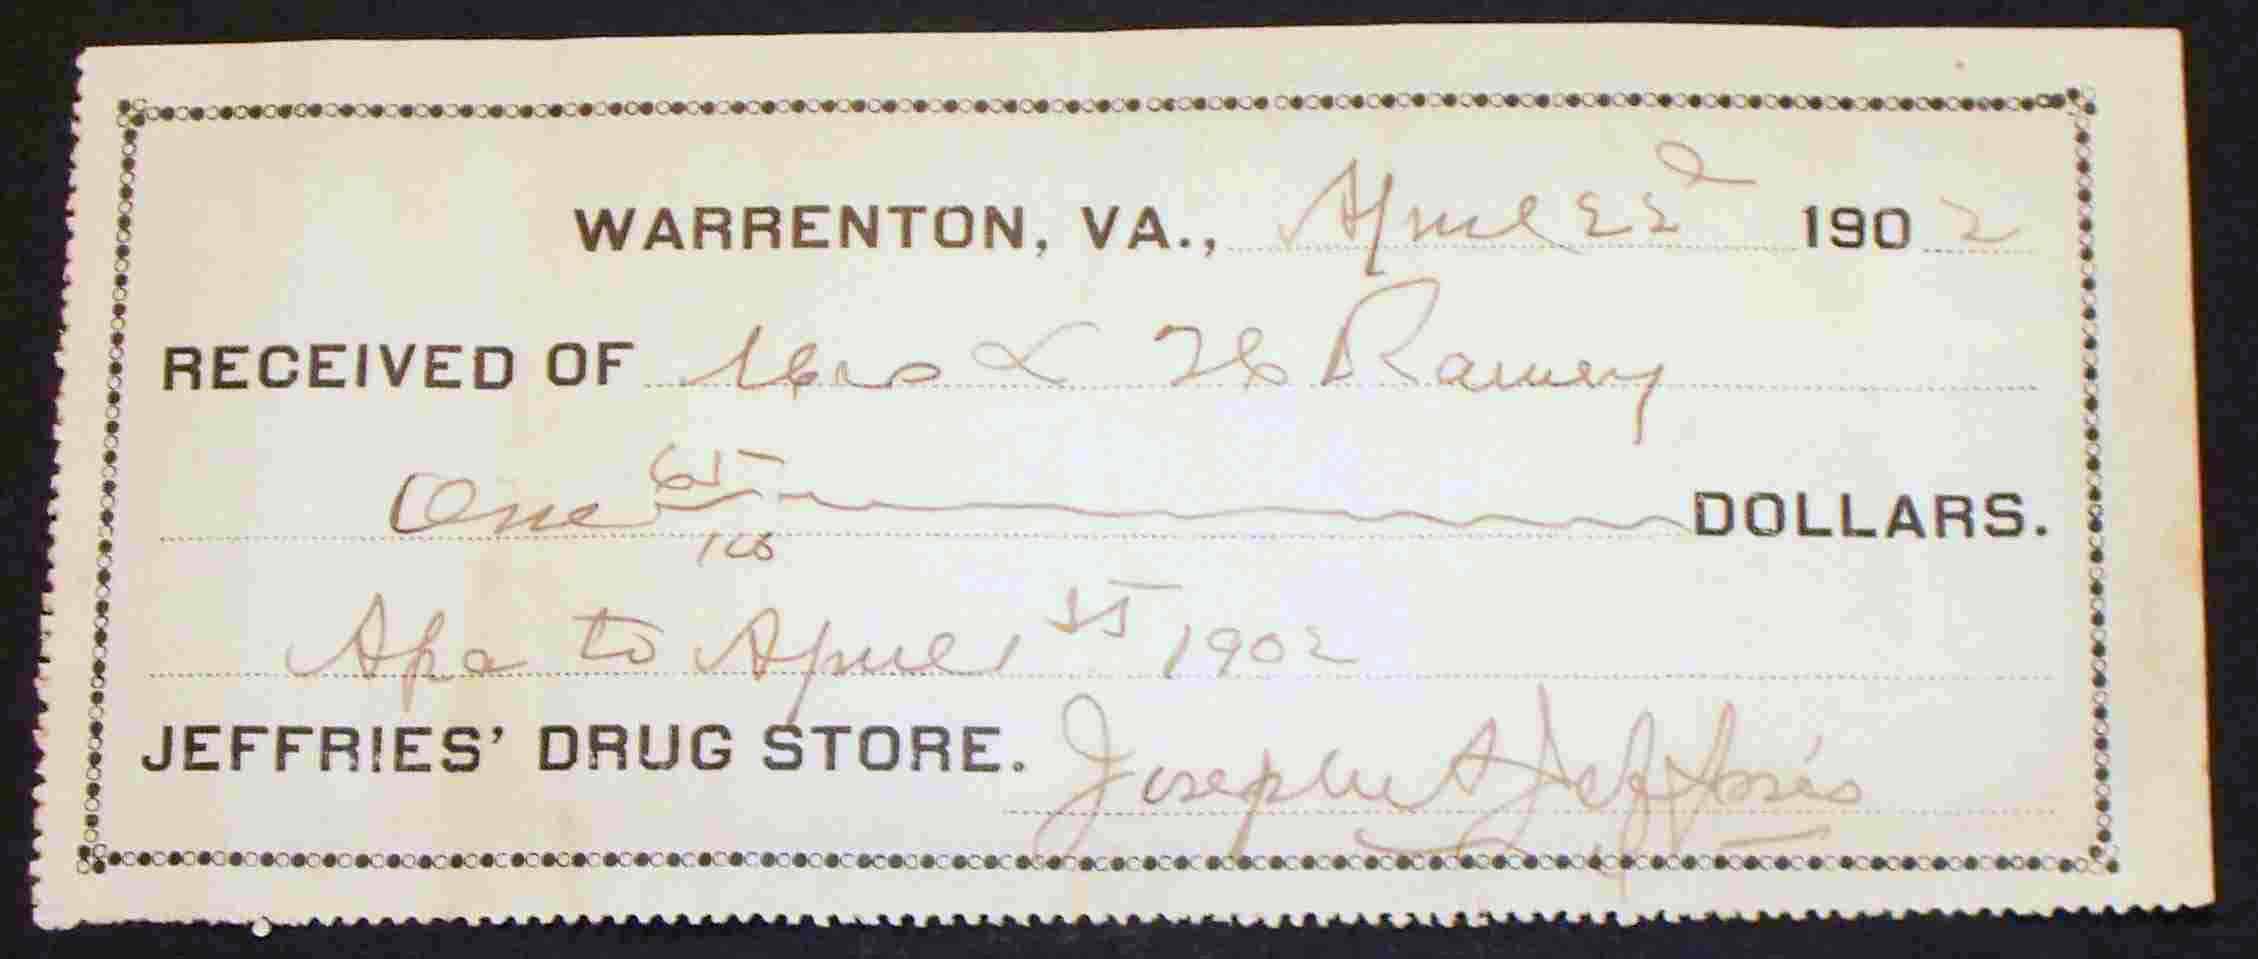 WARRENTON, VA., April 22d 1902
RECEIVED OF Mrs L H Ramey
One 65/100 DOLLARS.
A/c to April 1st 1902
JEFFRIES' DRUG STORE. Joseph A Jeffries